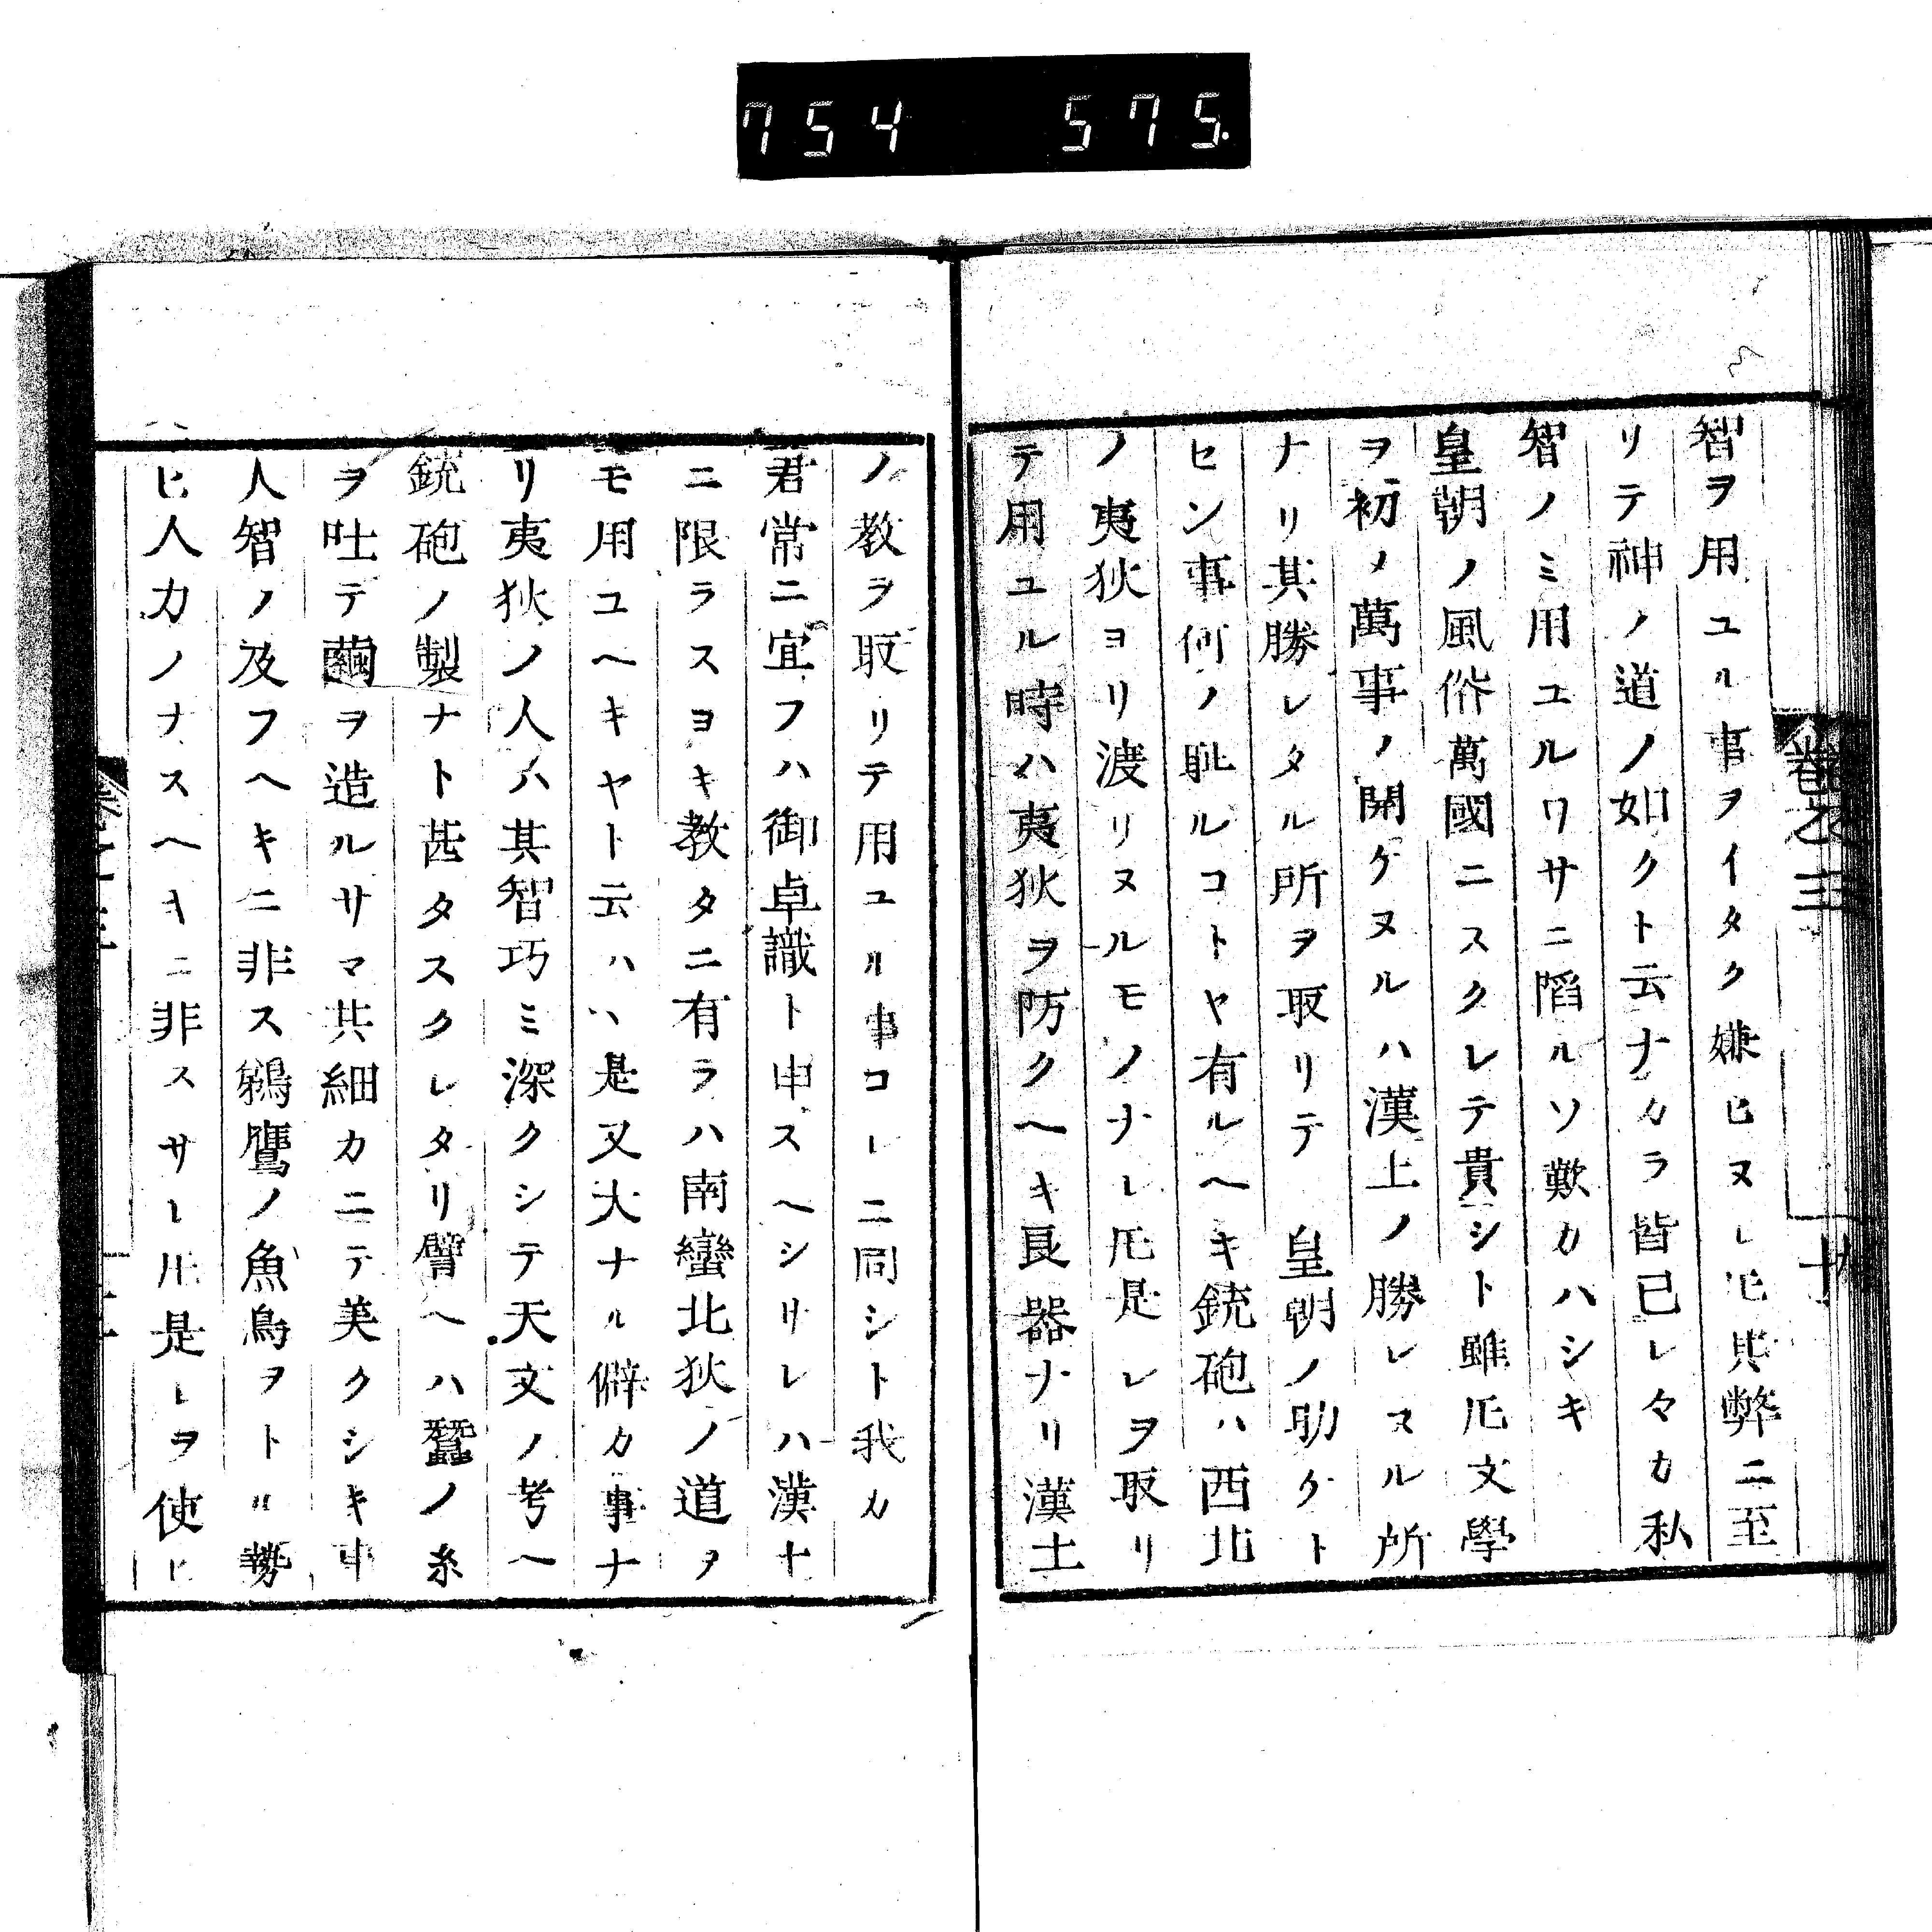 754 575.
卷之三
智ヲ用ユル事ヲイタク嫌ヒヌレ𪜈其弊ニ至
リテ神ノ道ノ如クト云ナカラ皆已レ々カ私
智ノミ用ユルワサニ陷ルソ歎カハシキ
皇朝ノ風俗萬國ニスクレテ貴シト雖𪜈文學
ヲ初メ萬事ノ開ケヌルハ漢土ノ勝レヌル所
ナリ其勝レタル所ヲ取リテ 皇朝ノ助ケト
セン事何ノ耻ルコトヤ有ルヘキ銃砲ハ西北
ノ夷狄ヨリ渡リヌルモノナレ𪜈是レヲ取リ
テ用ユル時ハ夷狄ヲ防クヘキ良器ナリ漢土
ノ教ヲ取リテ用ユル事コレニ同シト我カ
君常ニ宣フハ御卓識ト申スヘシサレハ漢土
ニ限ラスヨキ教タニ有ラハ南蠻北狄ノ道ヲ
モ用ユヘキヤト云ハヽ是又大ナル僻カ事ナ
リ夷狄ノ人ハ其智巧ミ深クシテ天文ノ考ヘ
銃砲ノ製ナト甚タスクレタリ譬ヘハ蠶ノ糸
ヲ吐テ繭ヲ造ルサマ其細カニテ美クシキ中
人智ノ及フヘキニ非ス鵜鷹ノ魚鳥ヲトル勢
ヒ人力ノナスヘキニ非スサレ𪜈是レヲ使ヒ